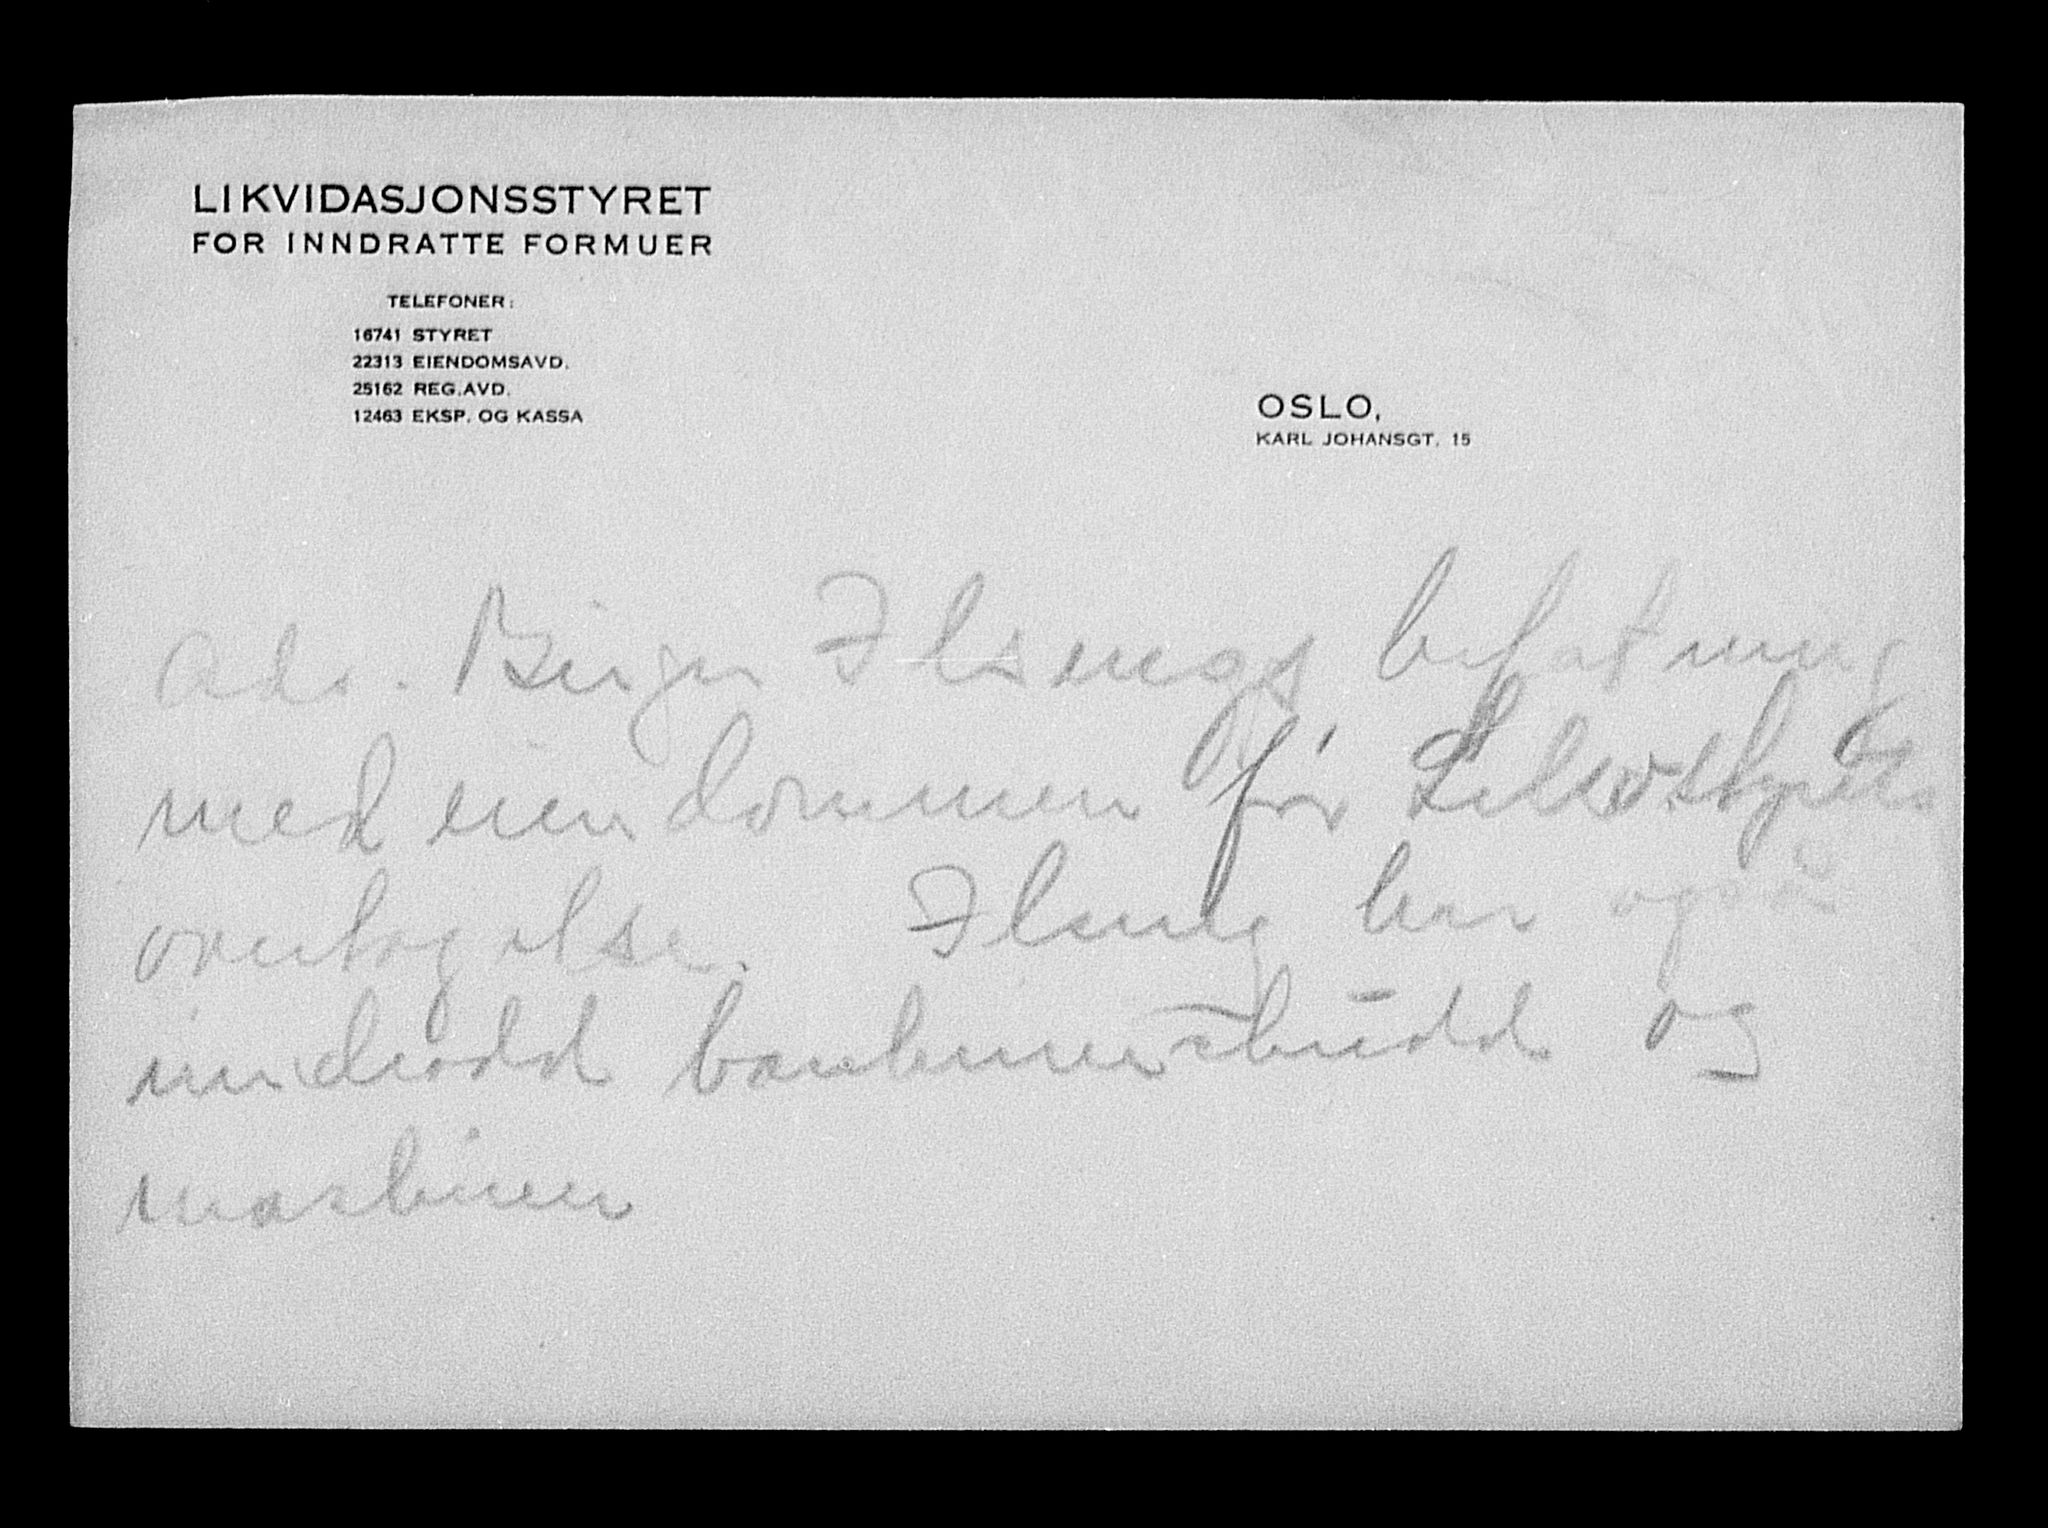 LIKVIDASJONSSTYRET
FOR INNDRATTE FORMUER
TELEFONER:
16741 STYRET
22313 EIENDOMSAVD.
25162 REG.AVD.
12463 EKSP. OG KASSA
OSLO,
KARL JOHANSGT. 15
Adv. Birger Ilsengs befatning
med eiendommen før Likv.styrets
overtagelse. Ilseng har også
inndradd og
maskiner